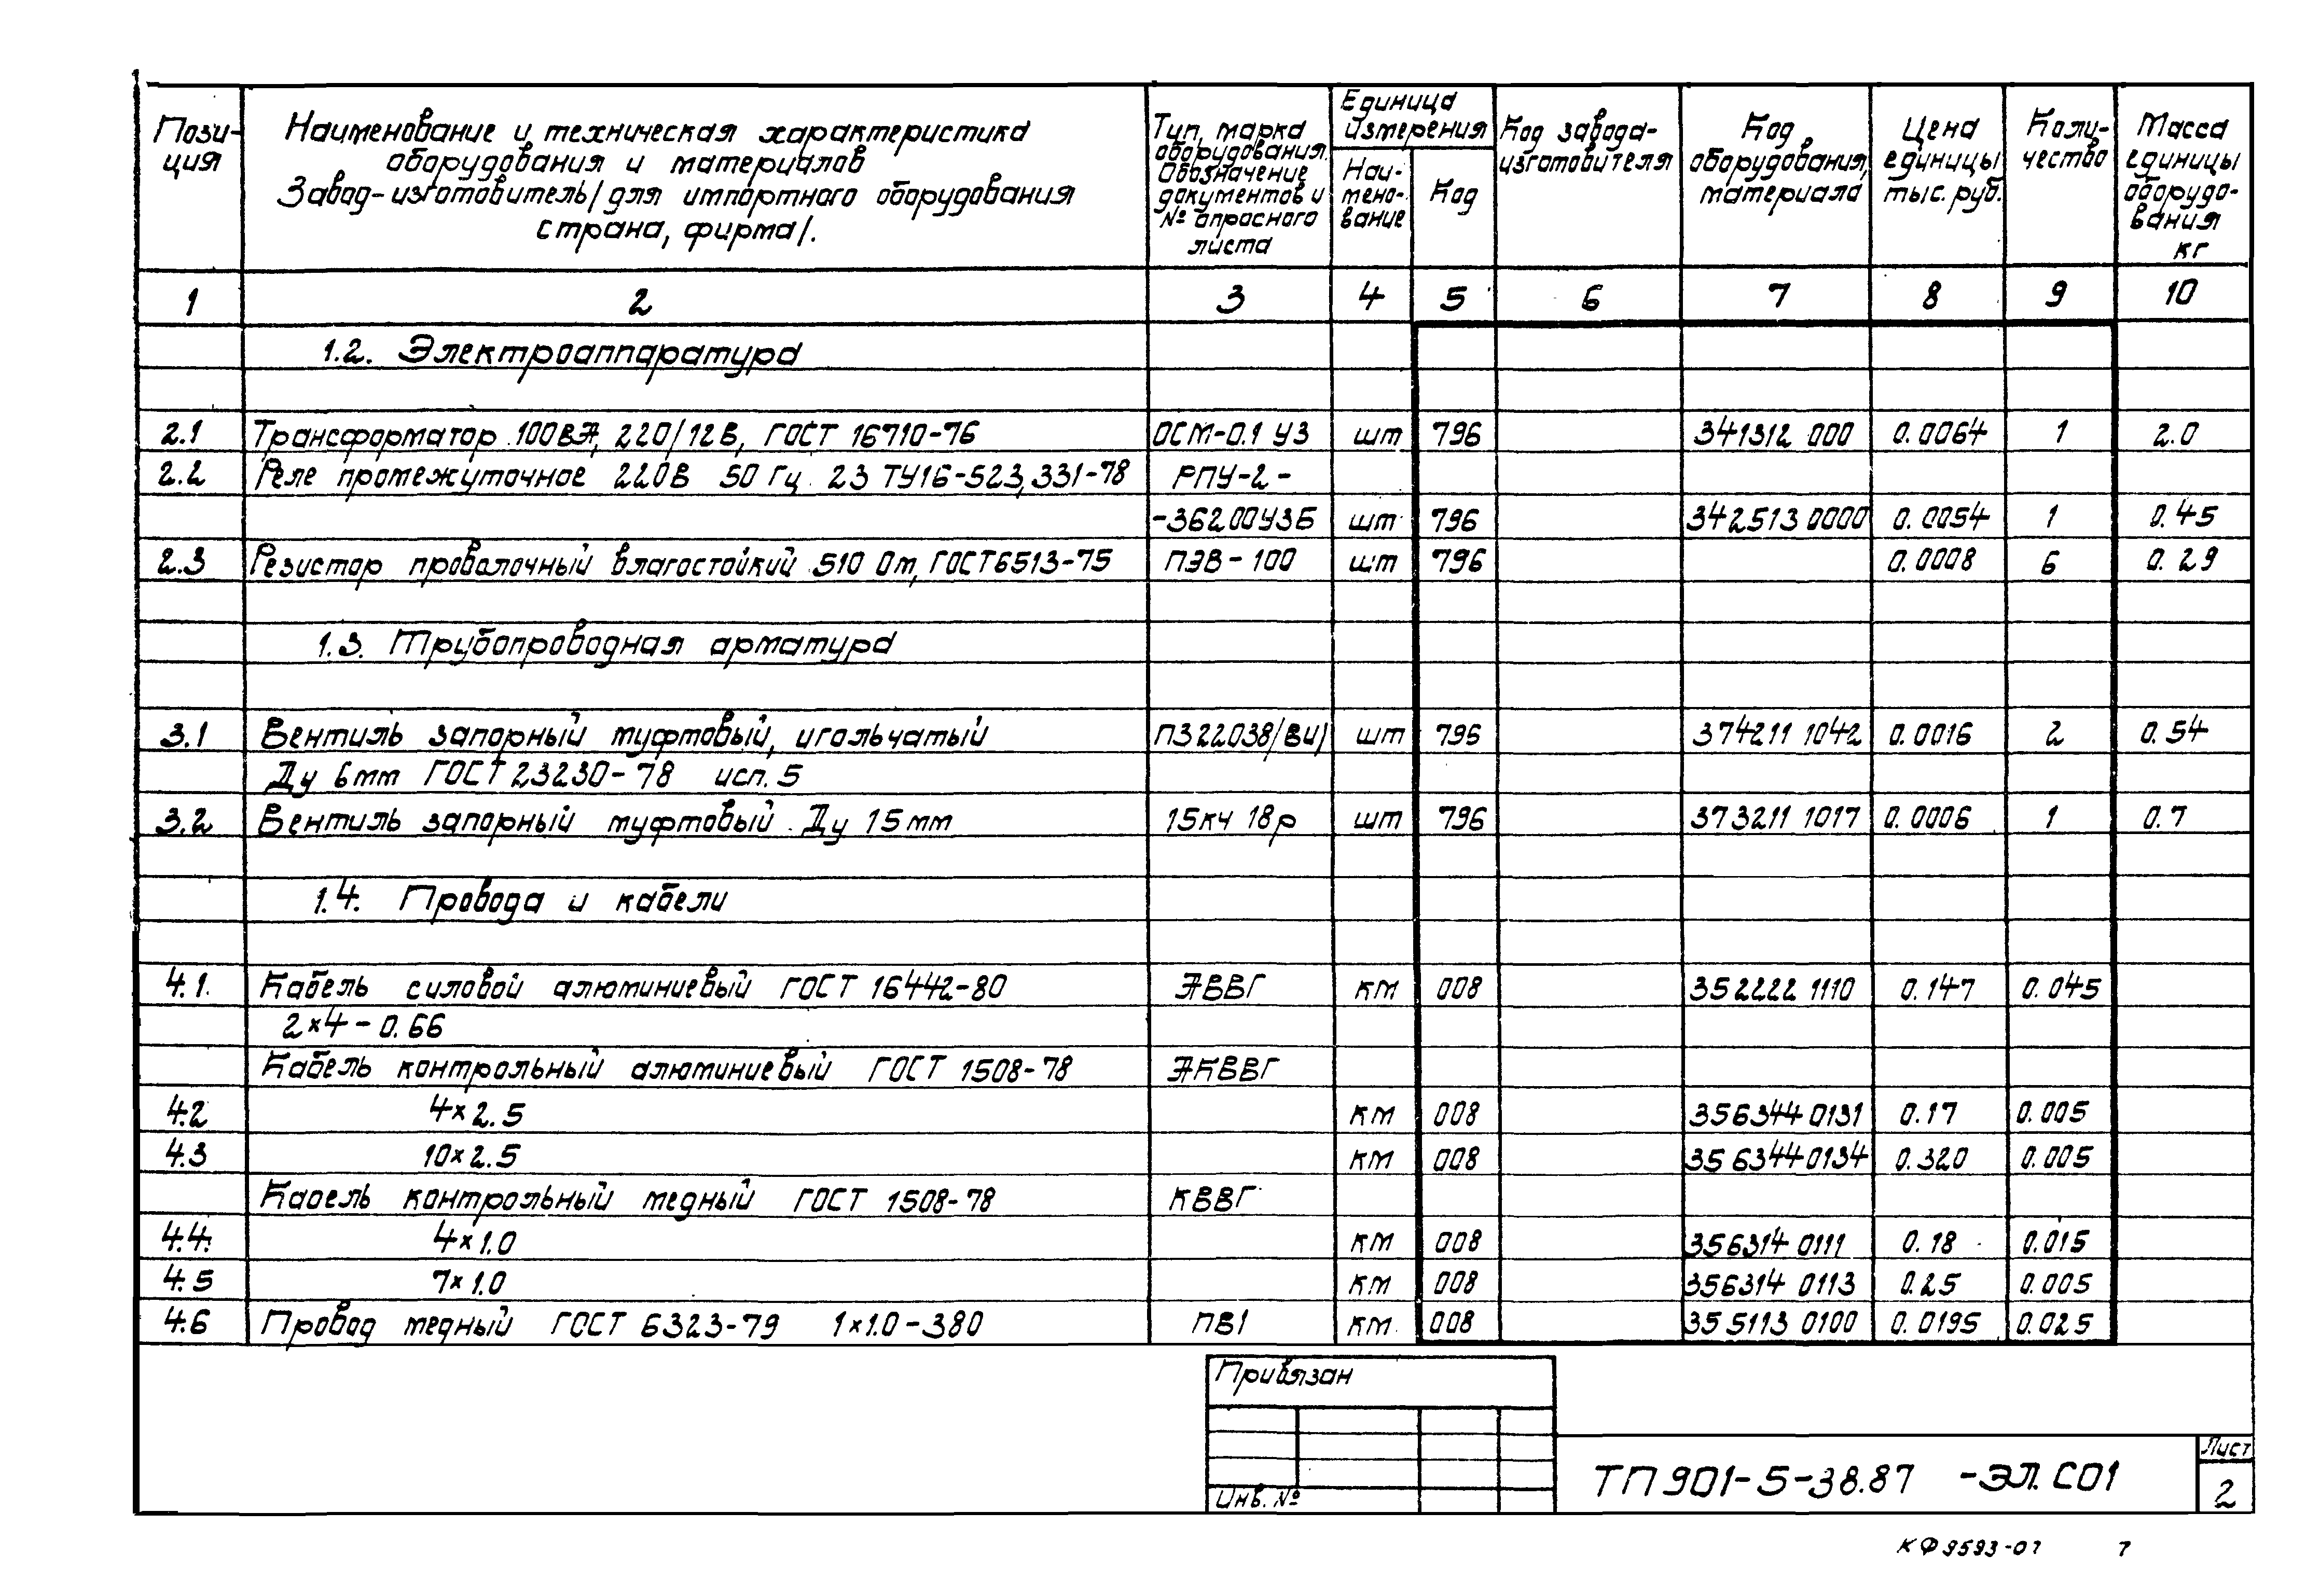 Пози-
ция
Наименование и техническая характеристика
оборудования и материалов
Завод-изготовитель/для импортного оборудования
страна, фирма/.
Тип, марка
оборудования.
Обозначение
документов и
№ опросного
листа
Единица
измерения
Наи-
мено-
вание
Код
Код завода-
изготовителя
Код
оборудования,
материала
Цена
единицы
тыс. руб.
Коли-
чество
Масса
единицы
оборудо-
вания
кг
1 2 3 4 5 6 7 8 9 10
1.2. Электроаппаратура
2.1 Трансформатор 100ВА, 220/12В, ГОСТ 16710-76 ОСМ-0.1 У3 шт 796 341312 000 0.0064 1 2.0
2.2 Реле промежуточное 220В 50 Гц 23 ТУ16-523,331-78 РПУ-2-
-36200У3Б шт 796 342513 0000 0.0054 1 0.45
2.3 Резистор проволочный влагостойкий 510 Ом, ГОСТ6513-75 ПЭВ-100 шт 796 0.0008 6 0.29
1.3. Трубопроводная арматура
3.1 Вентиль запорный муфтовый, игольчатый П322038/ВИ/ шт 796 374211 1042 0.0016 2 0.54
Ду 6мм ГОСТ 23230-78 исп. 5
3.2 Вентиль запорный муфтовый Ду 15мм 15кч 18р шт 796 373211 1017 0.0006 1 0.7
1.4. Провода и кабели
4.1. Кабель силовой алюминиевый ГОСТ 16442-80 АВВГ км 008 352222 1110 0.147 0.045
2×4-0.66
Кабель контрольный алюминиевый ГОСТ 1508-78 АКВВГ
4.2 4×2.5 км 008 356344 0131 0.17 0.005
4.3 10×2.5 км 008 356344 0134 0.320 0.005
Кабель контрольный медный ГОСТ 1508-78 КВВГ
4.4. 4×1.0 км 008 356314 0111 0.18 0.015
4.5 7×1.0 км 008 356314 0113 0.25 0.005
4.6 Провод медный ГОСТ 6323-79 1×1.0-380 ПВ1 км 008 355113 0100 0.0195 0.025
Привязан
Инв. №
ТП 901-5-38.87 -ЭЛ.СО1
Лист
2
КФ 9593-07 7